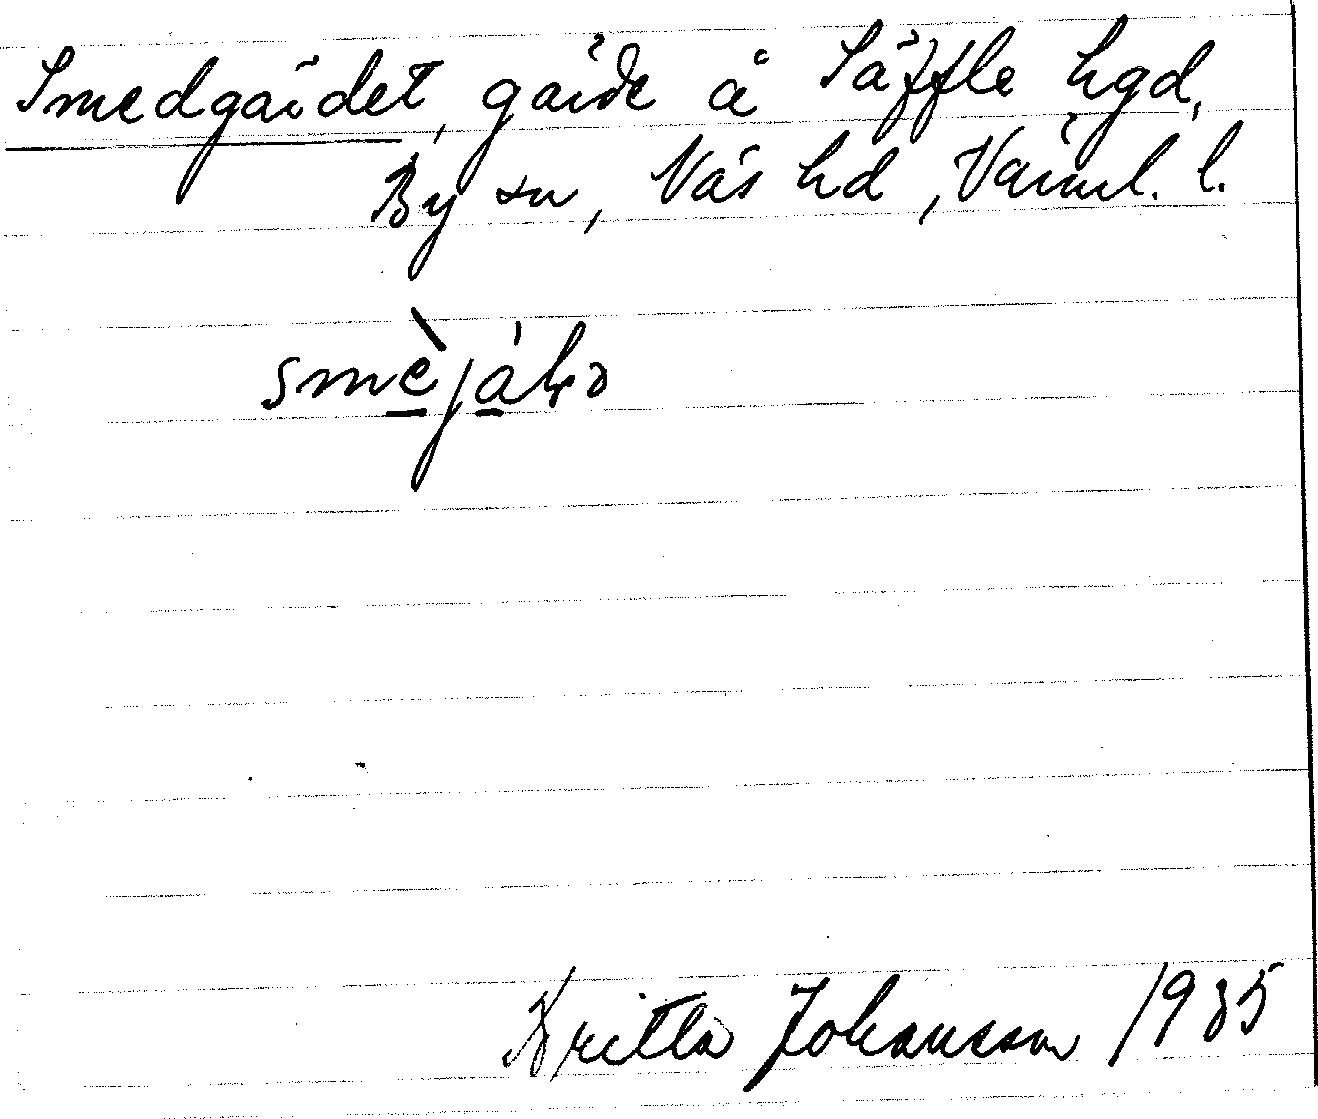 Smedgärdet, gärde å Säffle hgd,
By sn, Näs hd, Värml. l.
Britta Johansson 1935